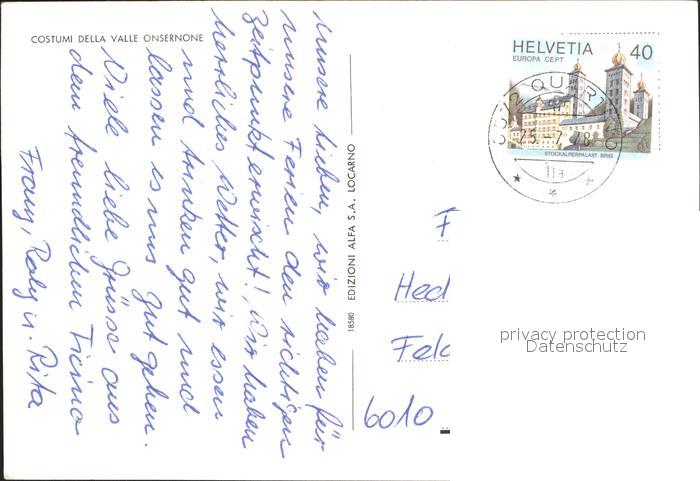 COSTUMI DELLA VALLE ONSERNONE
Unsere Lieben, wir haben für
unsere Ferien den richtigen
Zeitpunkt erwischt! Wir haben
herrliches Wetter, wir essen
und trinken gut und
lassen es uns gut gehen.
Viele liebe Grüsse aus
dem freundlichen Ticino
Franz, Roby u. Rita
18580 EDIZIONI ALFA S.A. LOCARNO
HELVETIA 40
EUROPA CEPT
STOCKALPERPALAST BRIG
25.-7.78
6010
privacy protection
Datenschutz